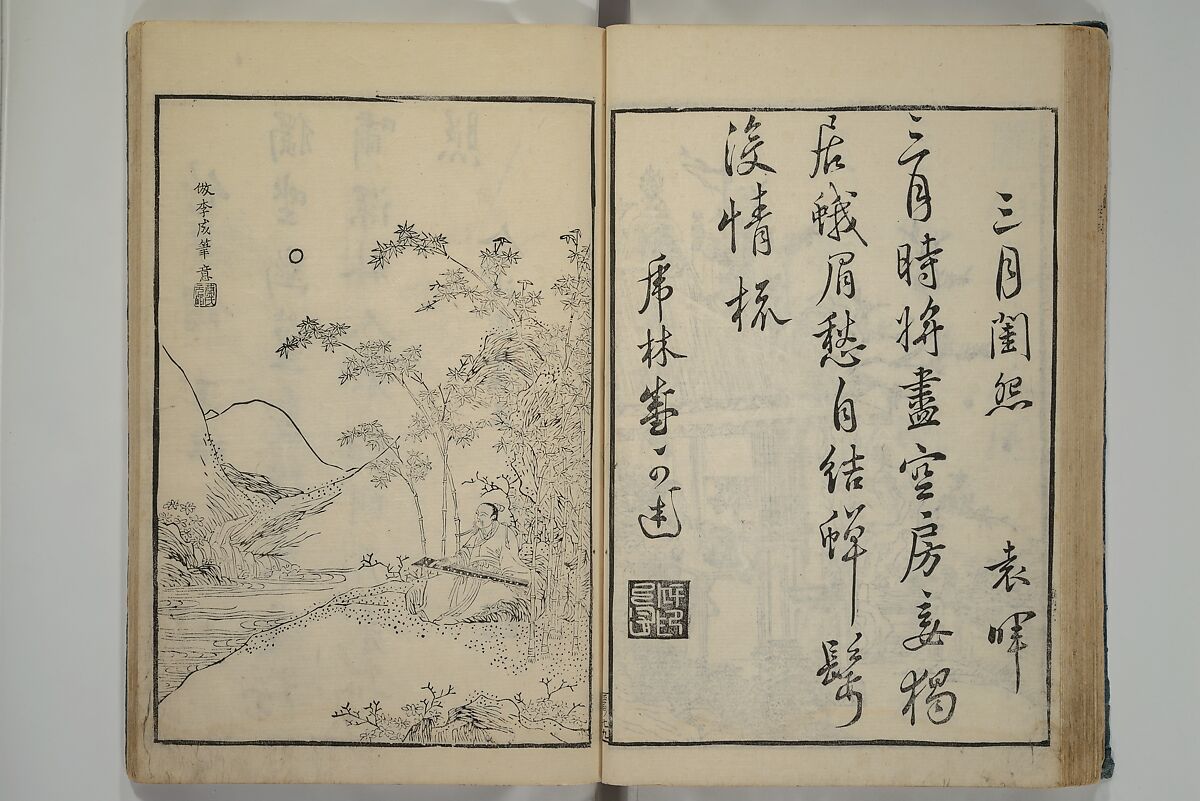 三月閨怨 袁暉
三月時將盡空房妾獨
居蛾眉愁自結蟬鬢
沒情梳
虎林盛可
倣李成筆意